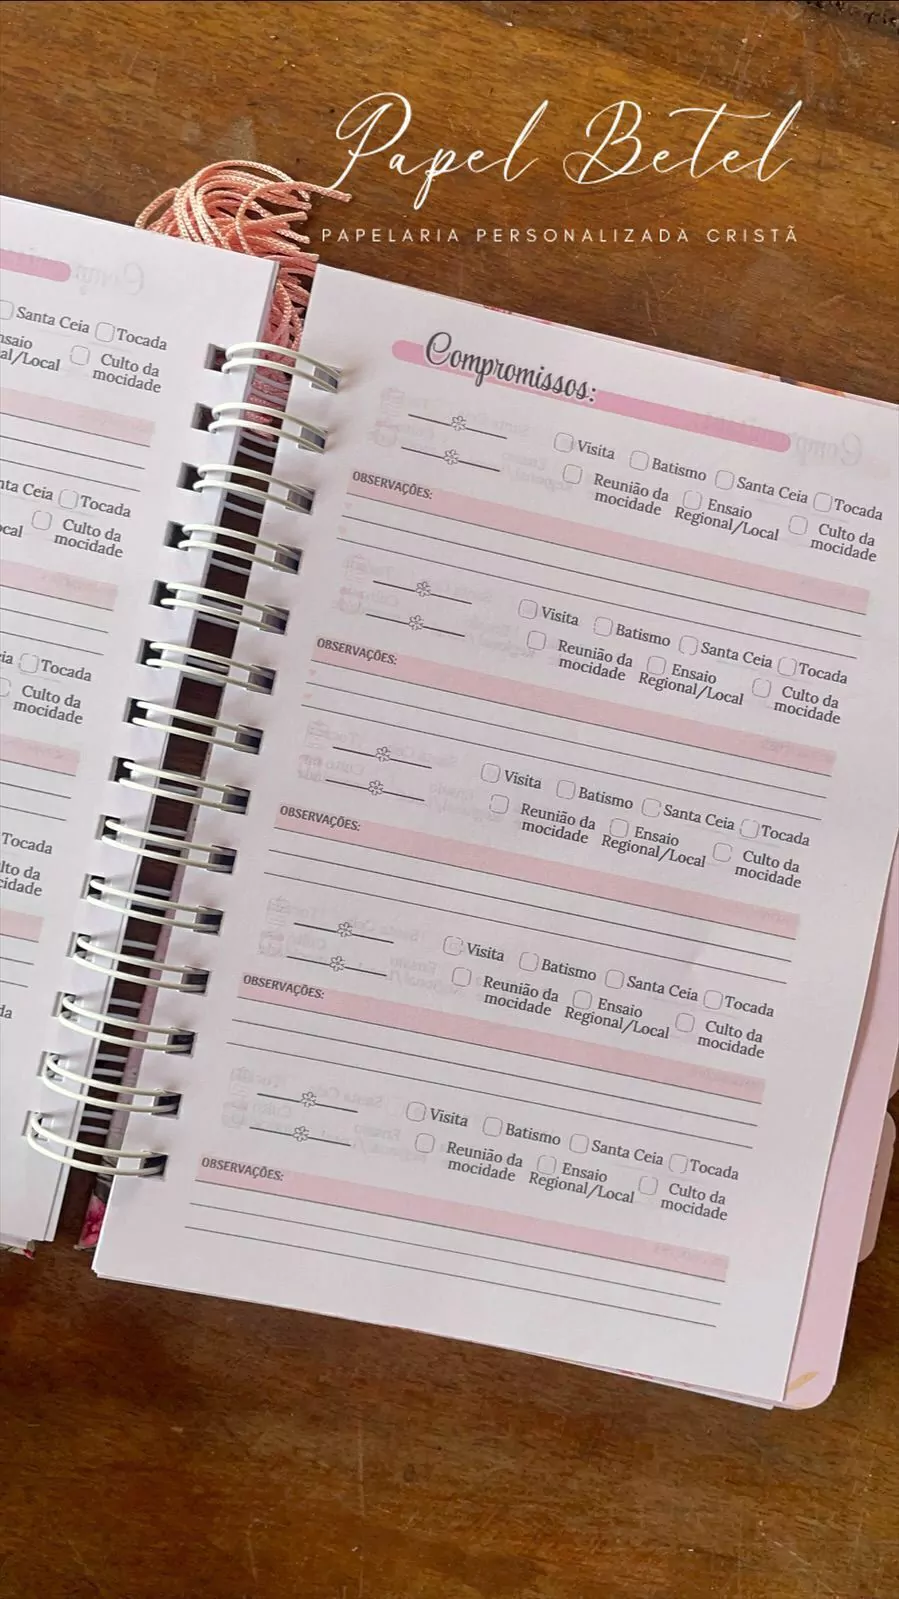 Papel Betel
PAPELARIA PERSONALIZADA CRISTÃ
Santa Ceia Tocada
al/Local Culto da
mocidade
Santa Ceia Tocada
Culto da
mocidade
Tocada
Culto da
mocidade
Tocada
Compromissos:
Visita Batismo Santa Ceia Tocada
Reunião da Ensaio Culto da
mocidade Regional/Local mocidade
OBSERVAÇÕES:
Visita Batismo Santa Ceia Tocada
Reunião da Ensaio Culto da
mocidade Regional/Local mocidade
OBSERVAÇÕES:
Visita Batismo Santa Ceia Tocada
Reunião da Ensaio Culto da
mocidade Regional/Local mocidade
OBSERVAÇÕES:
Visita Batismo Santa Ceia Tocada
Reunião da Ensaio Culto da
mocidade Regional/Local mocidade
OBSERVAÇÕES:
Visita Batismo Santa Ceia Tocada
Reunião da Ensaio Culto da
mocidade Regional/Local mocidade
OBSERVAÇÕES: